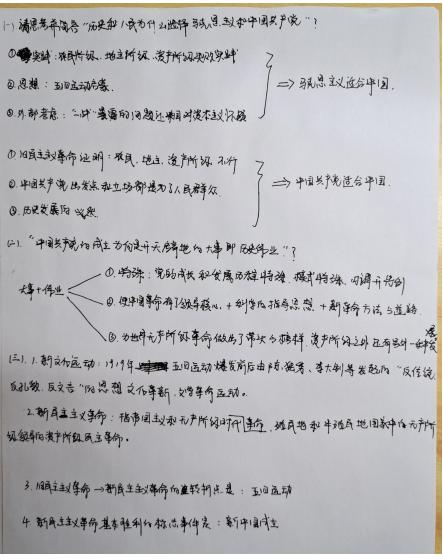 (一)请思考并回答"历史和人民为什么选择马克思主义和中国共产党"?
①实践:农民阶级、地主阶级、资产阶级失败实践
②思想:五四运动启蒙
③外部考虑:"一战"暴露的问题让中国对资本主义怀疑
⇒马克思主义适合中国.
①旧民主主义革命证明:农民、地主、资产阶级不行
②中国共产党出发点和立场都是为了人民群众.
③历史发展的必然
⇒中国共产党适合中国.
(二)."中国共产党的成立为何是开天辟地的大事即历史伟业"?
大事+伟业
①.特殊:党的成长和发展历程特殊,模式特殊,可谓开先例
②.使中国革命有了领导核心,+科学的指导思想+新革命方法与道路
③.为世界无产阶级革命做出了带头的榜样,资产阶级之外还有另外一种
(三)1.新文化运动:1919年五四运动爆发前后由陈独秀、李大钊等发起的"反传统,
反孔教,反文言"的思想文化革新,文学革命运动。
2.新民主主义革命:指帝国主义和无产阶级时代革命,殖民地和半殖民地国家中的无产阶
级领导的资产阶级民主革命。
3.旧民主主义革命→新民主主义革命的转折点是:五四运动
4.新民主主义革命基本胜利的标志事件是:新中国成立